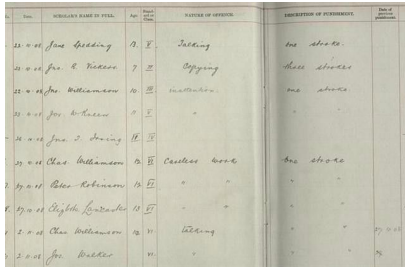 No. Date. SCHOLAR'S NAME IN FULL. Age. Standard or Class. NATURE OF OFFENCE. DESCRIPTION OF PUNISHMENT. Date of previous punishment.
22.11.08 Jane Spedding 13. V. Talking one stroke.
23.11.08 Jno. R. 9 III Copying three strokes
23.11.08 Jos. Williamson 10 III inattention. one stroke.
23.11.08 Jos. W. 11 V " " "
24.11.08 Jno. J. Irving IV " "
27.11.08 Chas Williamson 12 VI Careless work one stroke
27.11.08 Peter Robinson 13 VI " " " "
27.11.08 Elizbth Lancaster 13 VI " " " "
2.11.08 Chas Williamson 12 VI Talking " " 27.11.08
2.11.08 Jos. Walker VI. " " "